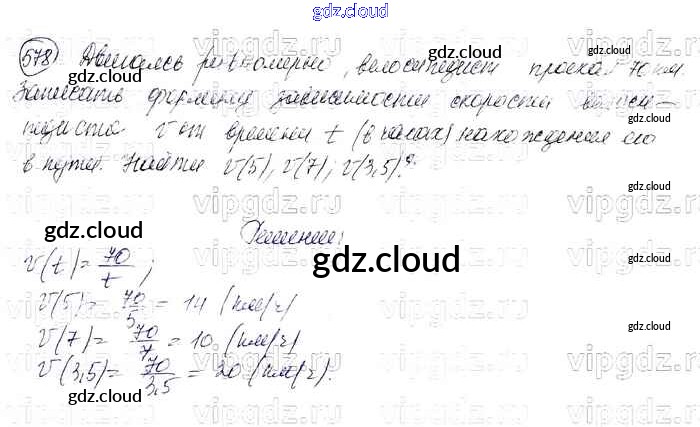 gdz.cloud
578) Двигаясь равномерно, велосипедист проехал 70 км.
Записать формулу зависимости скорости велоси-
педиста v от времени t (в часах) нахождения его
в пути. Найти v(5), v(7), v(3,5).
Решение:
v(t) = 70/t ;
v(5) = 70/5 = 14 (км/ч)
v(7) = 70/7 = 10 (км/ч)
v(3,5) = 70/3,5 = 20 (км/ч).
gdz.cloud
gdz.cloud
gdz.cloud
gdz.cloud
gdz.cloud
gdz.cloud
gdz.cloud
gdz.cloud
gdz.cloud
vipgdz.ru